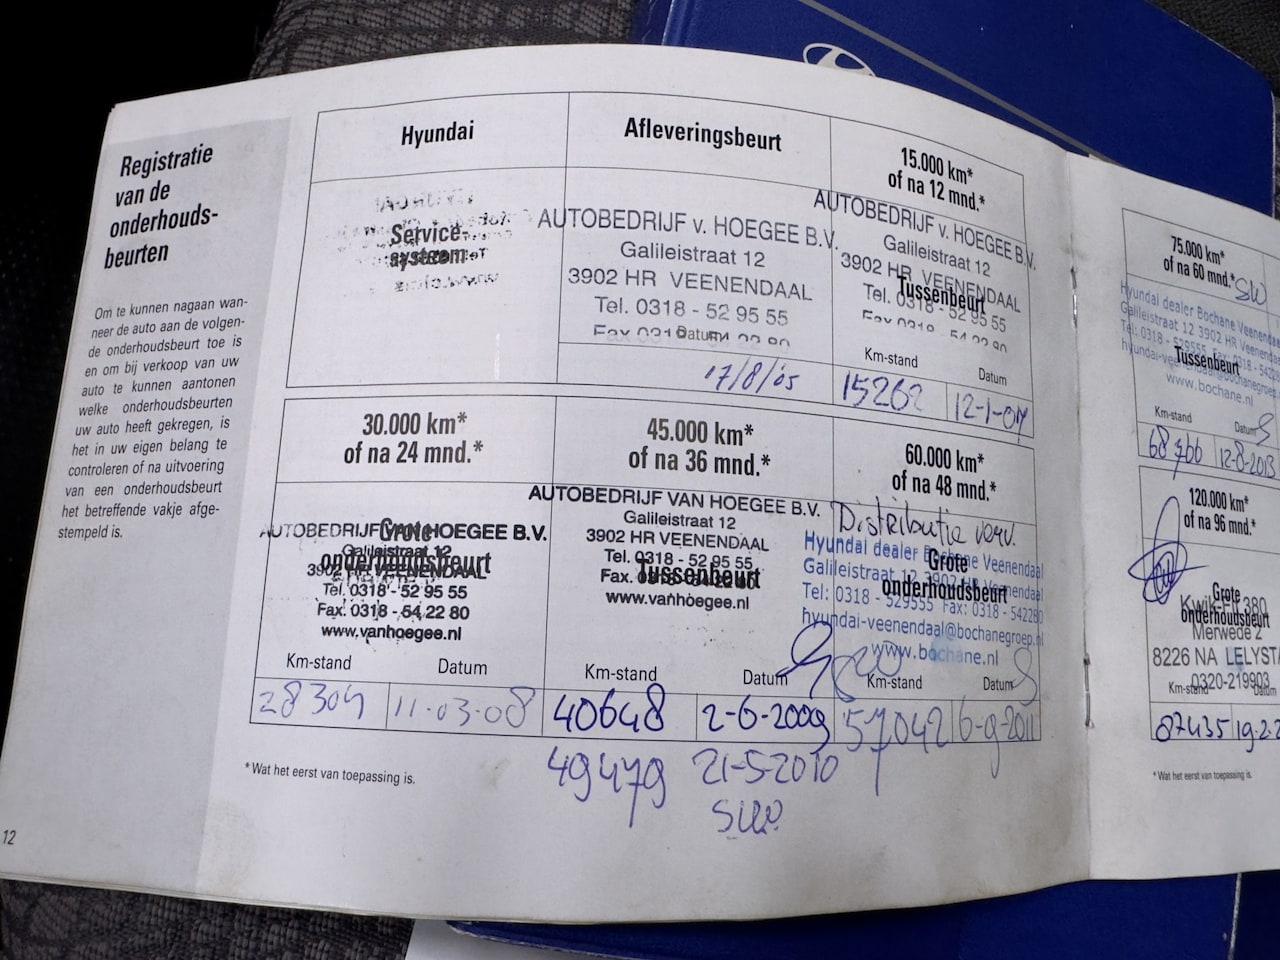 Registratie
van de
onderhouds-
beurten
Om te kunnen nagaan wan-
neer de auto aan de volgen-
de onderhoudsbeurt toe is
en om bij verkoop van uw
auto te kunnen aantonen
welke onderhoudsbeurten
uw auto heeft gekregen, is
het in uw eigen belang te
controleren of na uitvoering
van een onderhoudsbeurt
het betreffende vakje afge-
stempeld is.
12
Hyundai
Service-
systeem
Afleveringsbeurt
AUTOBEDRIJF v. HOEGEE B.V.
Galileistraat 12
3902 HR VEENENDAAL
Tel. 0318 - 52 95 55
Datum
17/8/05
15.000 km*
of na 12 mnd.*
AUTOBEDRIJF v. HOEGEE B.V.
Galileistraat 12
3902 HR VEENENDAAL
Tussenbeurt
Tel. 0318 - 52 95 55
Km-stand
Datum
15262
12-1-07
30.000 km*
of na 24 mnd.*
AUTOBEDRIJF VAN HOEGEE B.V.
Grote
onderhoudsbeurt
Galileistraat 12
3902 HR VEENENDAAL
Tel. 0318 - 52 95 55
Fax. 0318 - 54 22 80
www.vanhoegee.nl
Km-stand
Datum
28304
11-03-08
45.000 km*
of na 36 mnd.*
AUTOBEDRIJF VAN HOEGEE B.V.
Galileistraat 12
3902 HR VEENENDAAL
Tel. 0318 - 52 95 55
Tussenbeurt
Fax.
www.vanhoegee.nl
Km-stand
Datum
40648
2-6-2009
49479
21-5-2010
60.000 km*
of na 48 mnd.*
Distributie verv.
Hyundai dealer Bochane Veenendaal
Grote
onderhoudsbeurt
Galileistraat 12 3902 HR Veenendaal
Tel: 0318 - 529555 Fax: 0318 - 542280
hyundai-veenendaal@bochanegroep.nl
www.bochane.nl
Km-stand
Datum
57042
6-9-2011
*Wat het eerst van toepassing is.
75.000 km*
of na 60 mnd.*
SW
Hyundai dealer Bochane Veenendaal
Galileistraat 12 3902 HR Veenendaal
Tel: 0318 - 529555 Fax: 0318 - 5422
Tussenbeurt
hyundai-veenendaal@bochanegroep
www.bochane.nl
Km-stand
Datum
68766
12-8-2013
120.000 km*
of na 96 mnd.*
Grote
onderhoudsbeurt
Kwik-Fit 380
Merwede 2
8226 NA LELYSTA
0320-219903
Km-stand
Datum
87435
19-2-2
*Wat het eerst van toepassing is.